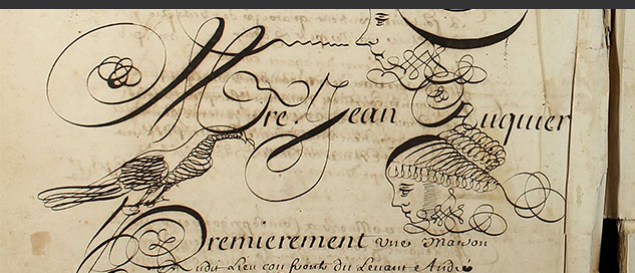 Mre. Jean
Premierement une Maison
audit Lieu confronts du Levant André